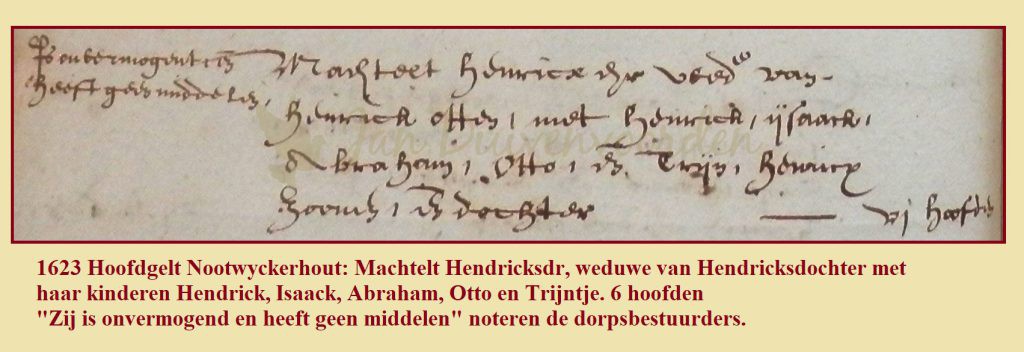 Is onvermogent en̄
heeft geen middelen,
Machtelt henricx dr weedᵉ van
henrick otten, met henrick, ijsaack,
Abraham, Otto, en̄ Trijn, henricx
Zoons, en̄ dochter vj hoofden
1623 Hoofdgelt Nootwyckerhout: Machtelt Hendricksdr, weduwe van Hendricksdochter met
haar kinderen Hendrick, Isaack, Abraham, Otto en Trijntje. 6 hoofden
"Zij is onvermogend en heeft geen middelen" noteren de dorpsbestuurders.